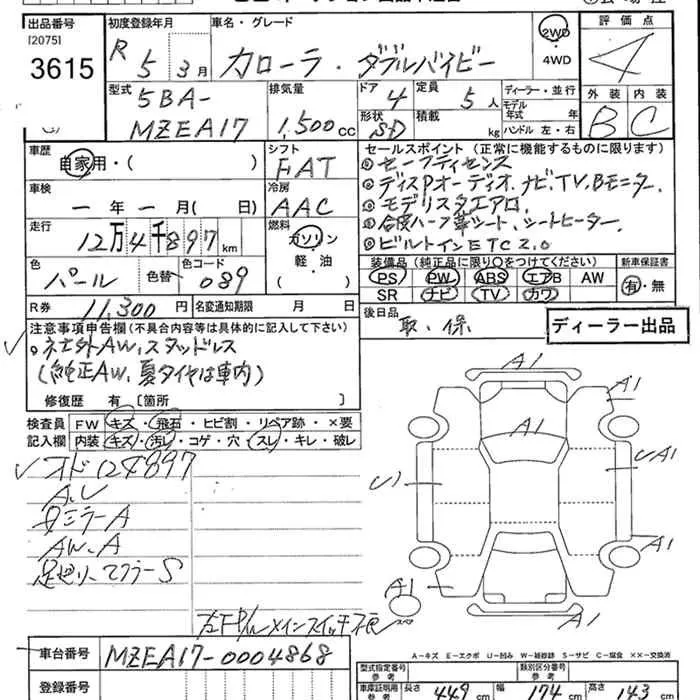 出品番号 初度登録年月 車名・グレード 2WD・4WD 評価点
[2075]
3615
R 5年 3月 カローラ・ダブルバイビー 4
型式 排気量 ドア 定員 ディーラー・並行 外装 内装
5BA-
MZEA17 1,500cc 4 5人 モデル年式 年式 B C
形状 SD 積載 kg ハンドル 左・右
車歴 シフト セールスポイント(正常に機能するものに限ります)
自家用・( ) FAT
①セーフティセンス
②ディスPオーディオ、ナビ、TV、Bモニター
車検 冷房
ー年ー月( 日) AAC
③モデリスタエアロ、
④合皮ハーフ革シート、シートヒーター、
走行 燃料
12万4千897km ガソリン・軽・油( )
⑤ビルトインETC2.0
色 色替 色コード
パール 089
装備品(純正品に限り○をつけてください) 新車保証書
PS PW ABS エアB AW
SR ナビ TV カワ 有・無
R券 11,300円 名変通知期限 月 日
後日品 取・保
ディーラー出品
注意事項申告欄(不具合内容等は具体的に記入して下さい)
社外AW、スタッドレス
(純正AW、夏タイヤは車内)
修復歴 有〔箇所 〕
検査員記入欄
FW キズ・飛石・ヒビ割・リペア跡・×要
内装 キズ・汚レ・コゲ・穴・スレ・キレ・破レ
オド124897
A.U
ミラーA
AW、A
足廻り、マフラーS
メインスイッチ
A1
A1
A1
U1
UA1
A1
A1
A1
スペア
A-キズ E-エクボ U-凹み W-補修跡 S-サビ C-腐食 ××-交換済
車台番号 MZEA17-0004868
型式指定番号 参考 類別区分番号 参考
登録番号
車庫証明用 参考 長さ 449cm 幅 174cm 高さ 143cm